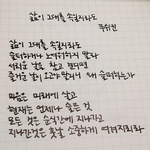 삶이 그대를 속일지라도
푸쉬킨
삶이 그대를 속일지라도
슬퍼하거나 노여워하지 말라
서러운 날을 참고 견디면
즐거운 날이 고야 말리니 왜 슬퍼하는가
마음은 미래에 살고
현재는 언제나 슬픈 것
모든 것은 순식간에 지나가고
지나간것은 훗날 소중하게 여겨지리라